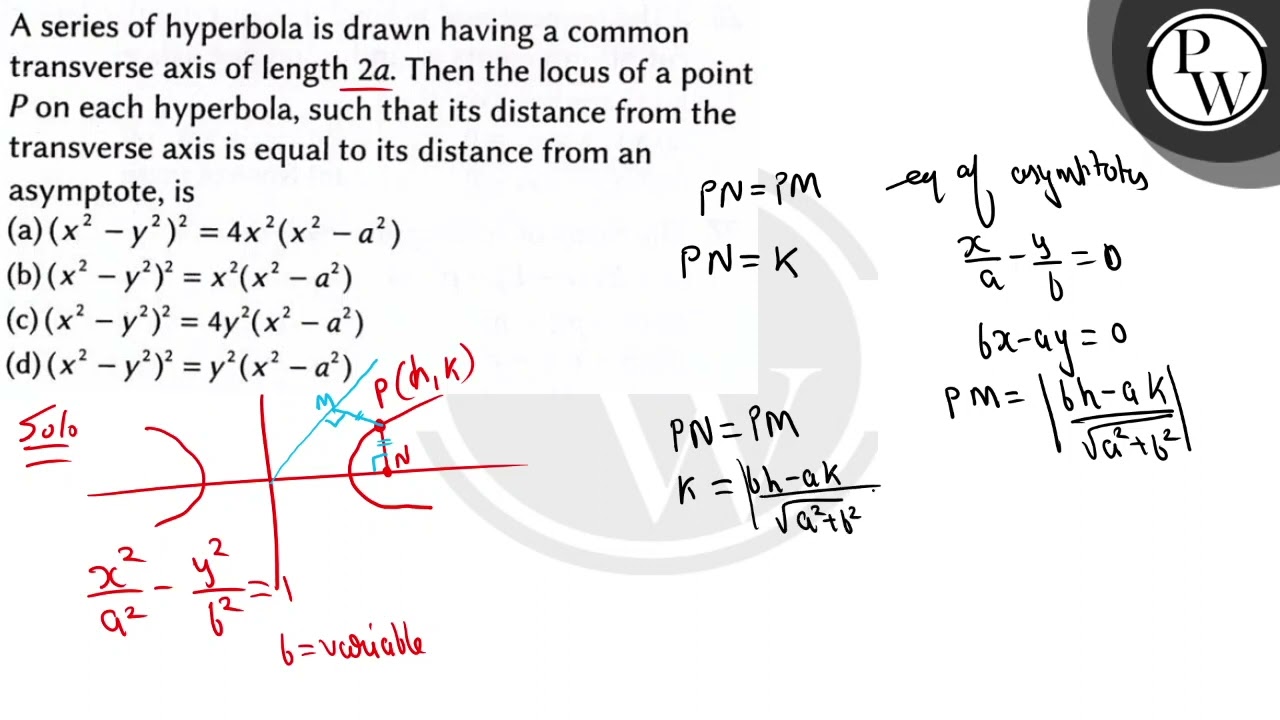 A series of hyperbola is drawn having a common
transverse axis of length 2a. Then the locus of a point
P on each hyperbola, such that its distance from the
transverse axis is equal to its distance from an
asymptote, is
(a) (x² − y²)² = 4x²(x² − a²)
(b) (x² − y²)² = x²(x² − a²)
(c) (x² − y²)² = 4y²(x² − a²)
(d) (x² − y²)² = y²(x² − a²)
Solo
M
P(h, k)
N
x²/a² − y²/b² = 1
b = variable
PN = PM
PN = K
PN = PM
K = |bh − ak / √a² + b²
eq of asymptotes
x/a − y/b = 0
bx − ay = 0
PM = |bh − ak / √a² + b²|
P
W